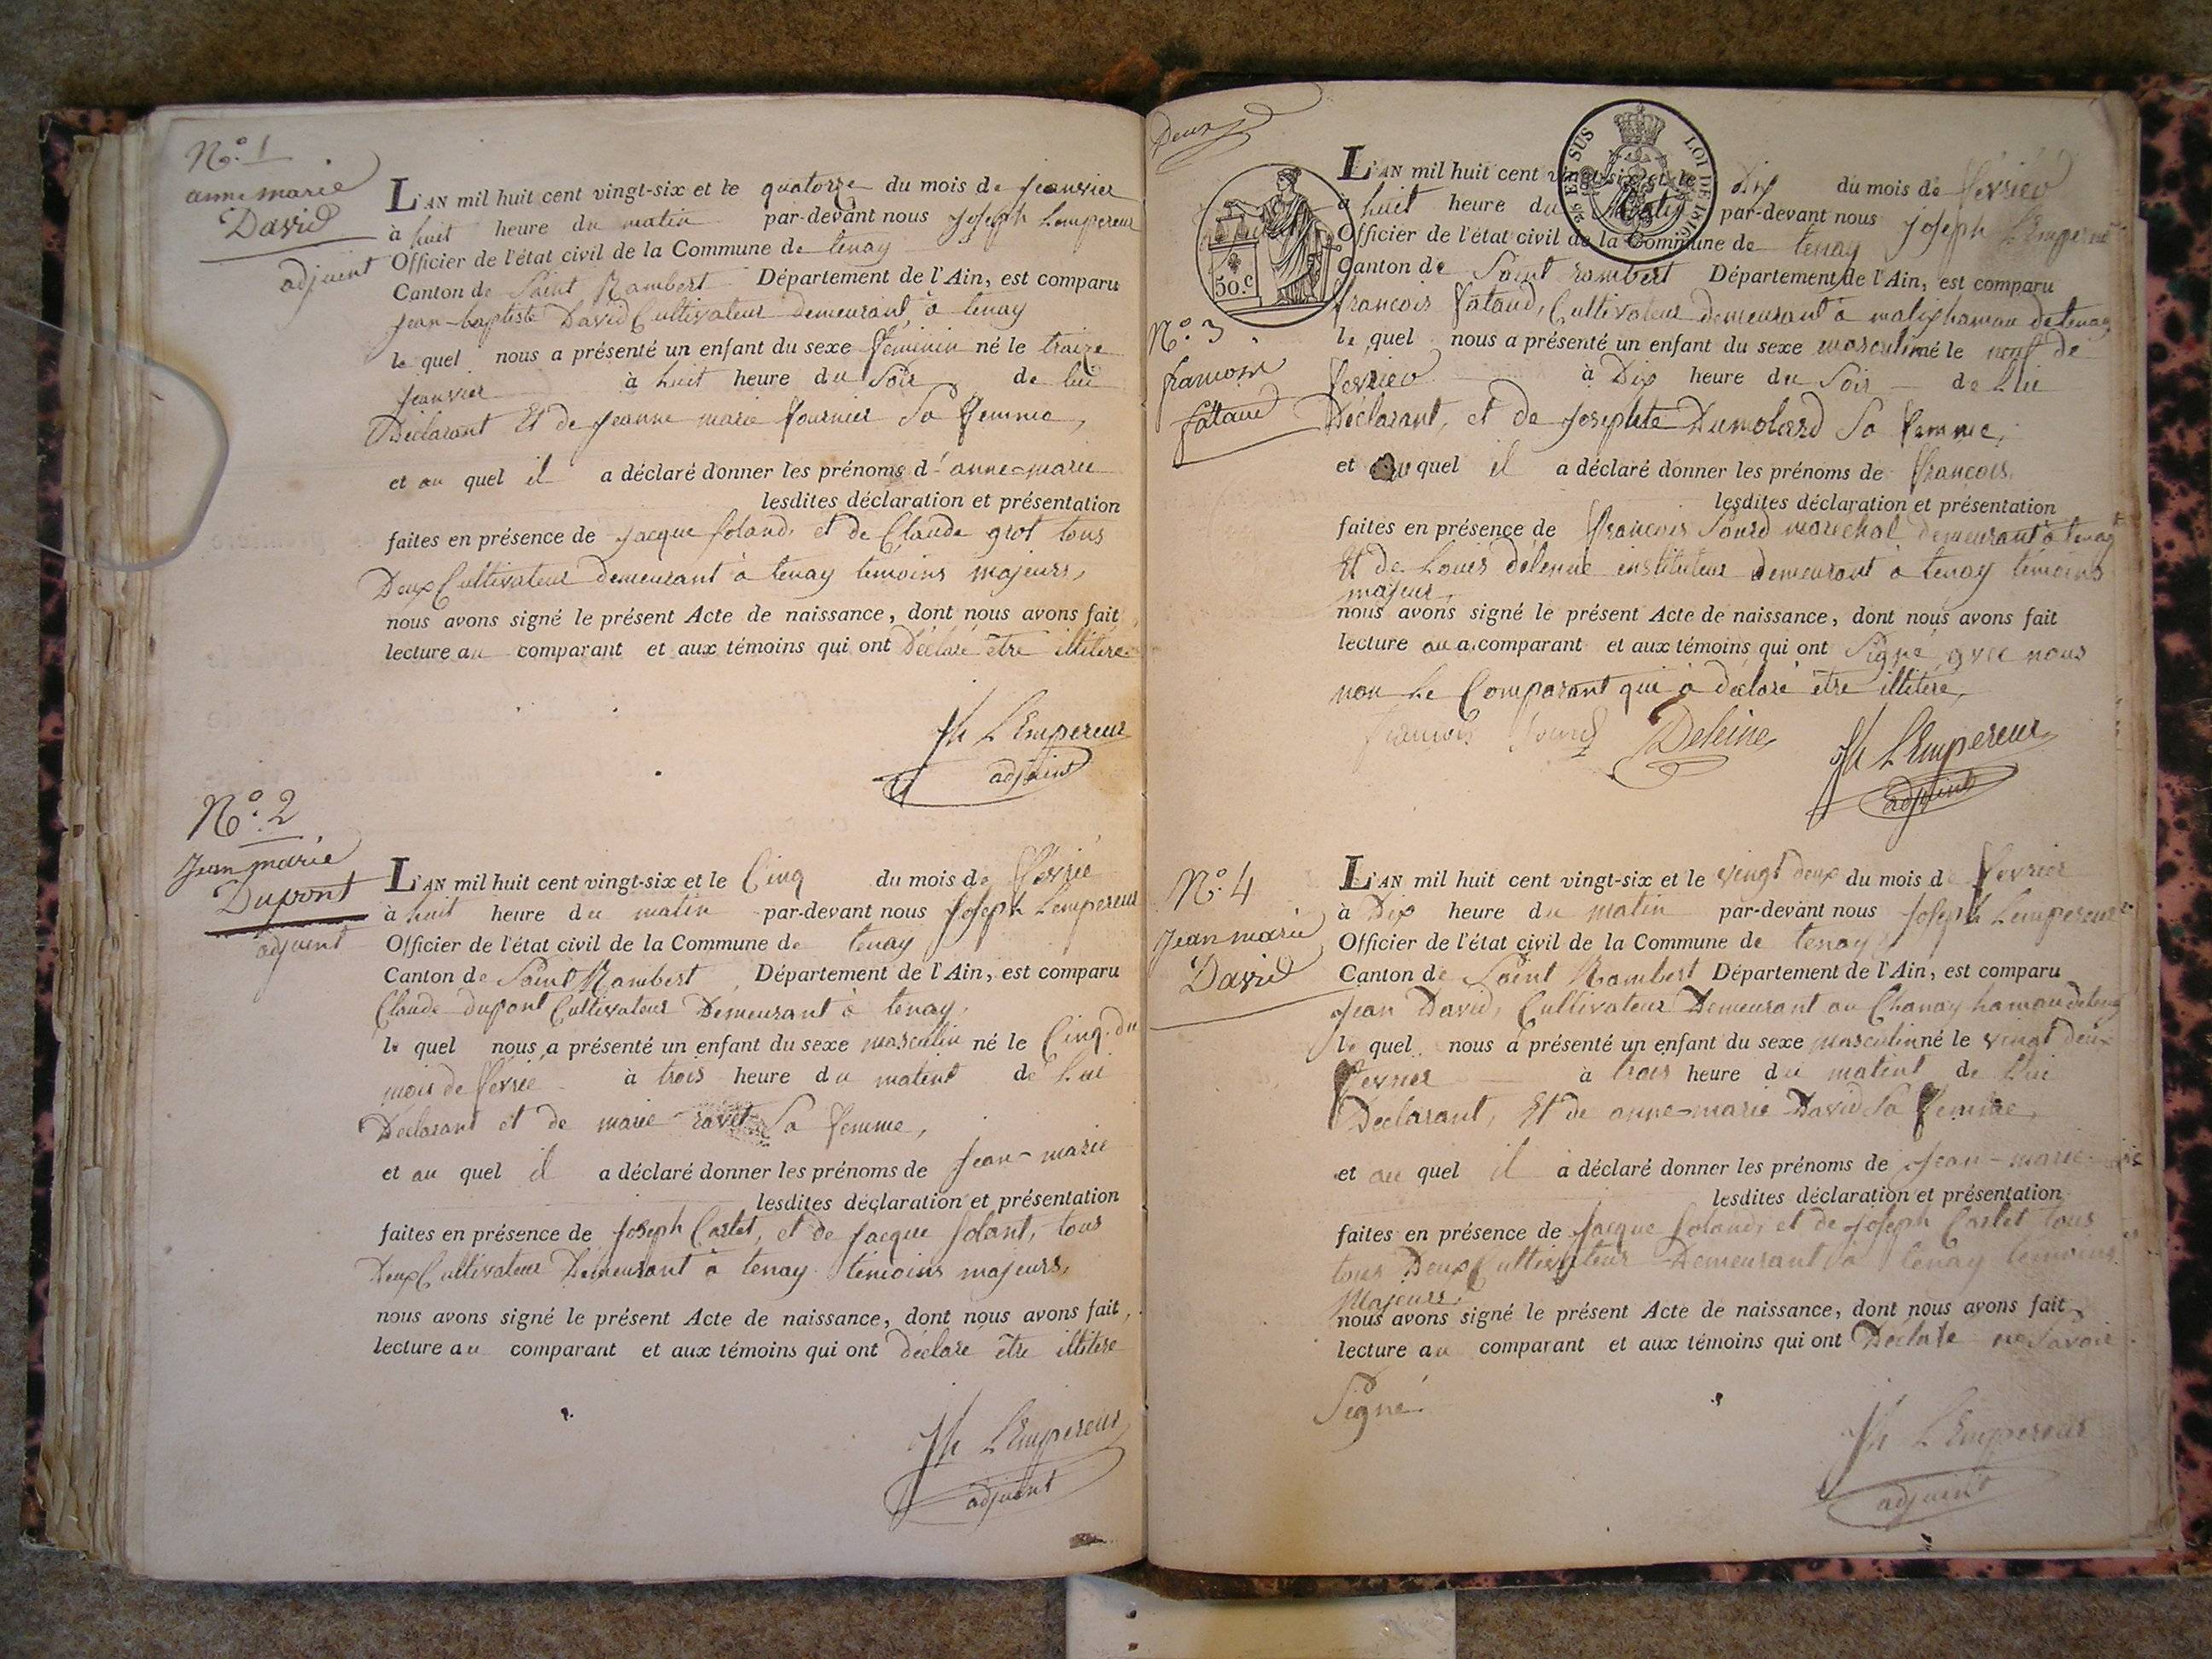 N.° 1
anne marie
David
adjuint
L'AN mil huit cent vingt-six et le quatorze du mois de jeanvier
à huit heure du matin par-devant nous Joseph Lempereur
Officier de l'état civil de la Commune de tenay
Canton de Saint Rambert Département de l'Ain, est comparu
jean-baptiste David Cultivateur demeurant à tenay
le quel nous a présenté un enfant du sexe feminin né le traize
jeanvier à huit heure du Soir de lui
Déclarant Et de jeanne marie fournier Sa femme,
et au quel il a déclaré donner les prénoms d'anne-marie
lesdites déclaration et présentation
faites en présence de jacque Joland, et de Claude grot tous
Deux Cultivateur demeurant à tenay temoins majeurs,
nous avons signé le présent Acte de naissance, dont nous avons fait
lecture au comparant et aux témoins qui ont Déclaré être illitére
Jh L'Empereur
adjuint
N.° 2
Jean marie
Dupont
adjuint
L'AN mil huit cent vingt-six et le Cinq du mois de fevrié
à huit heure du matin par-devant nous Joseph Lempereur
Officier de l'état civil de la Commune de tenay
Canton de Saint Rambert Département de l'Ain, est comparu
Claude dupont Cultivateur Demeurant à tenay,
le quel nous a présenté un enfant du sexe masculin né le Cinq du
mois de fevrié à trois heure du matint de lui
Déclarant et de marie ravet Sa femme,
et au quel il a déclaré donner les prénoms de Jean-marie
lesdites déclaration et présentation
faites en présence de Joseph Carlet, et de jacque Jolant, tous
Deux Cultivateur Demeurant à tenay témoins majeurs,
nous avons signé le présent Acte de naissance, dont nous avons fait
lecture au comparant et aux témoins qui ont déclaré être illitére
Jh L'Empereur
adjuint
Deux
EN SUS LOI DE 1816
50.c
N.° 3
francois
fataud
L'AN mil huit cent vingt-six et le Dix du mois de fevrier
à huit heure du Matin par-devant nous Joseph L'Empereur
Officier de l'état civil de la Commune de tenay
Canton de Saint rambert Département de l'Ain, est comparu
francois fataud, Cultivateur demeurant à malix hamau de tenay
le quel nous a présenté un enfant du sexe masculin né le neuf de
fevrier à Dix heure du Soir de Lui
Déclarant, et de Josephte Dumolard Sa femme,
et au quel il a déclaré donner les prénoms de francois
lesdites déclaration et présentation
faites en présence de francois Sourd marechal demeurant à tenay
Et de Louis déleine instituteur demeurant à tenay témoins
majeur,
nous avons signé le présent Acte de naissance, dont nous avons fait
lecture au comparant et aux témoins qui ont Signé avec nous
non Le Comparant qui à déclaré être illitéré,
francois Sourd Deleine Jh L'Empereur
adjuint
N.° 4
Jean marie
David
L'AN mil huit cent vingt-six et le vingt deux du mois de fevrier
à Dix heure du matin par-devant nous Joseph Lempereur
Officier de l'état civil de la Commune de tenay
Canton de Saint Rambert Département de l'Ain, est comparu
Jean David, Cultivateur Demeurant au Chanay hamau de tenay
le quel nous a présenté un enfant du sexe masculin né le vingt deux
fevrier à trois heure du matint de Lui
Déclarant, Et de anne-marie David Sa femme,
et au quel il a déclaré donner les prénoms de Jean-marie
lesdites déclaration et présentation
faites en présence de Jacque Joland, et de Joseph Carlet tous
tous Deux Cultivateur Demeurant à tenay temoins
Majeurs,
nous avons signé le présent Acte de naissance, dont nous avons fait
lecture au comparant et aux témoins qui ont Déclaré ne Savoir
Signé
Jh L'Empereur
adjuint